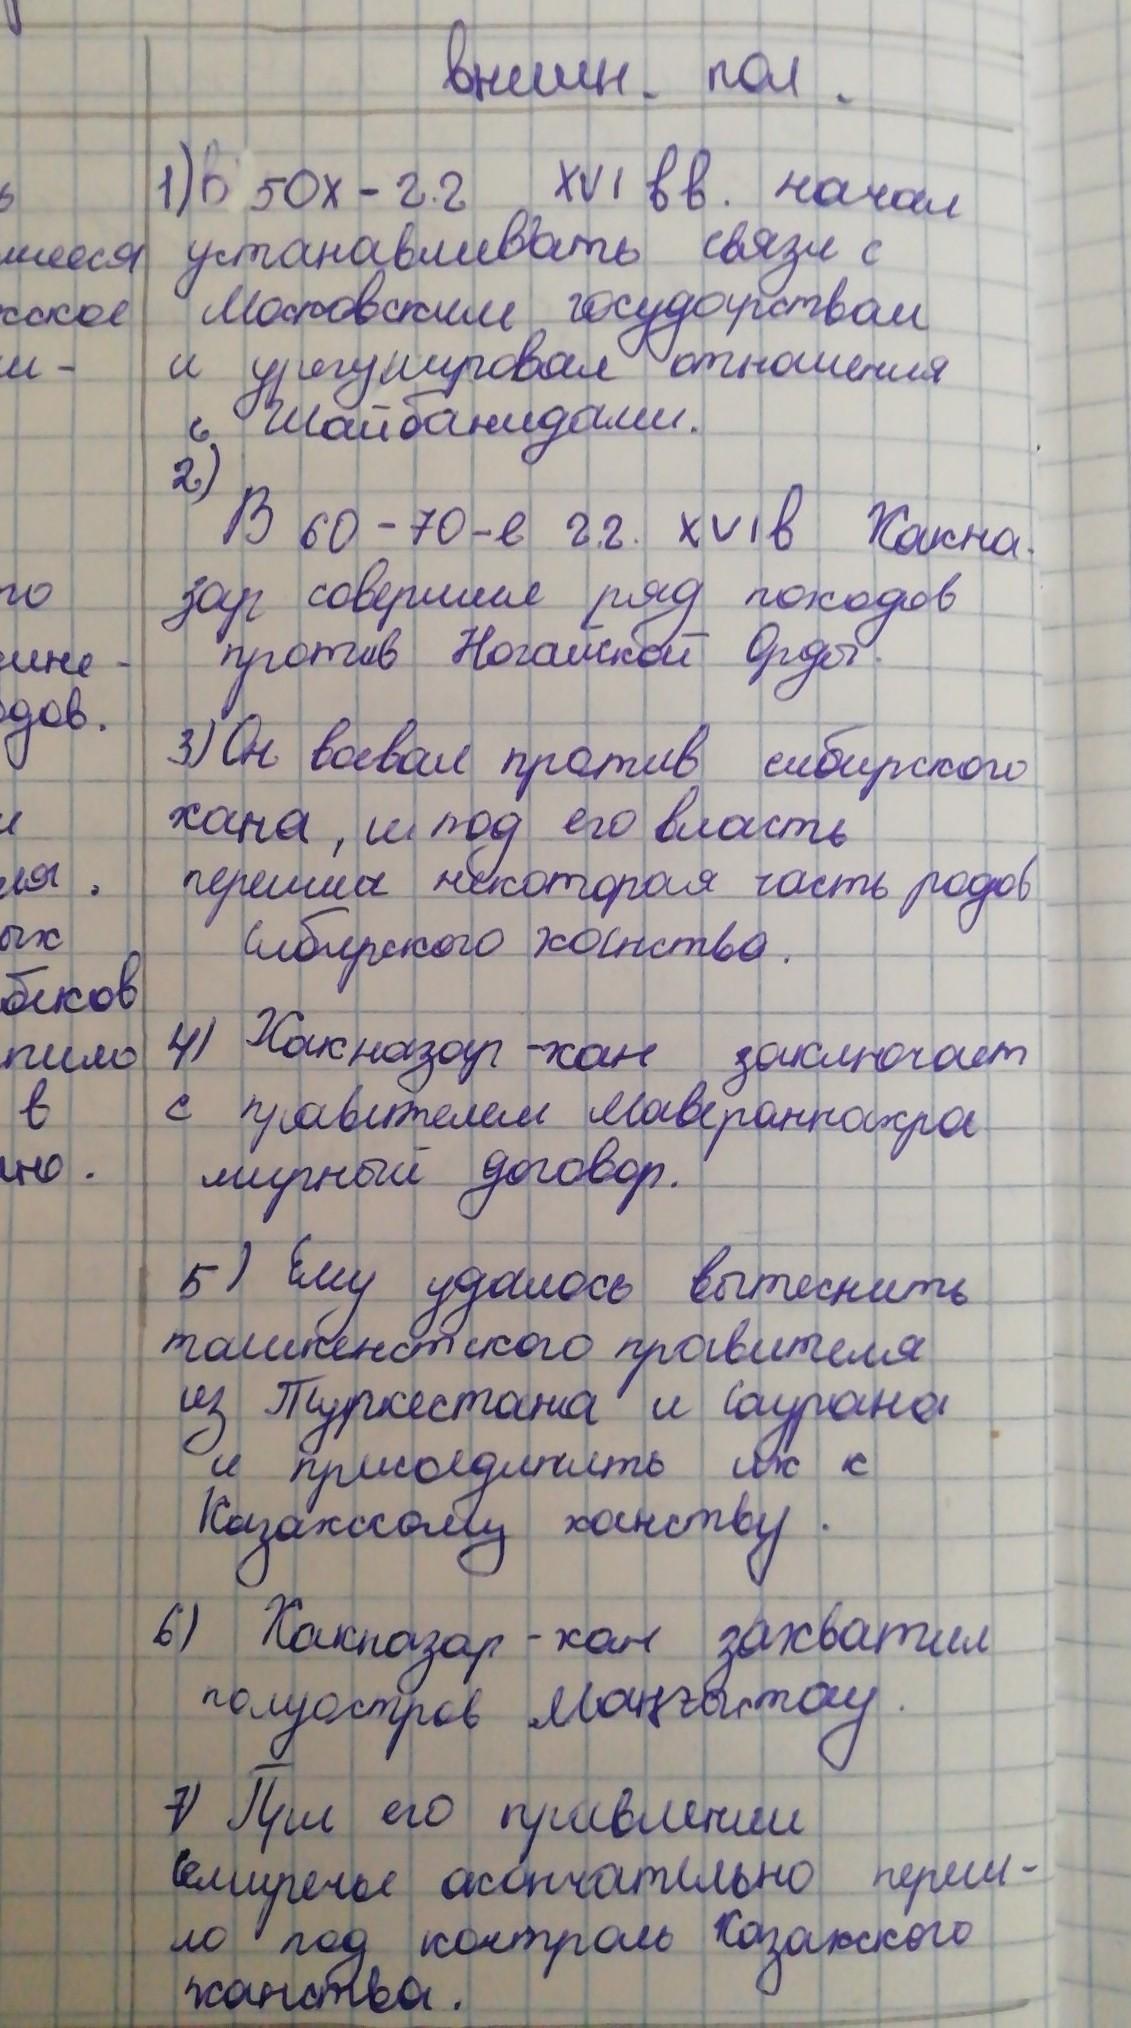 внешн. пол.
1) В 50х-г.г XVI вв. начал
ь
устанавливать связи с
шееся
Московским государствам
жское
и урегулировал отношения
ши-
с Шайбанидами.
2)
В 60-70-е г.г. XVI в Хакна-
зар совершил ряд походов
го
против Ногайской Орды.
ине-
одов.
3) Он воевал против сибирского
хана, и под его власть
и
перешла некоторая часть родов
ля.
Сибирского ханства.
ых
беков
4) Хакназар-хан заключает
пило
с правителем Мавераннахра
в
мирный договор.
но.
5) Ему удалось вытеснить
ташкенстского правителя
из Туркестана и Саурана
и присоединить их к
Казахскому ханству.
6) Хакназар-хан захватил
полуостров Маңғыстау.
7) При его правлении
Семиречье окончательно переш-
ло под контроль Казахского
ханства.